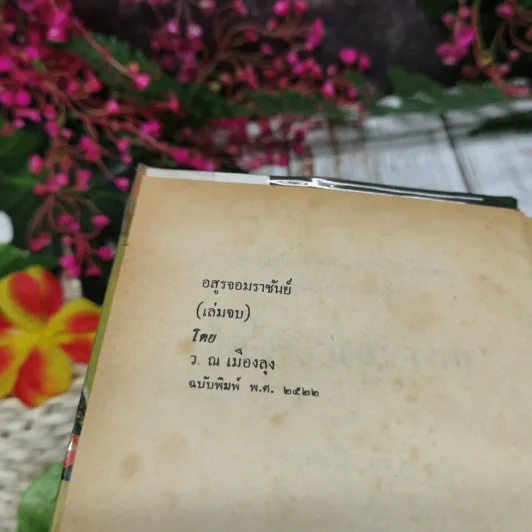 อสูรจอมราชันย์
(เล่มจบ)
โดย
ว. ณ เมืองลุง
ฉบับพิมพ์ พ.ศ. ๒๕๒๒